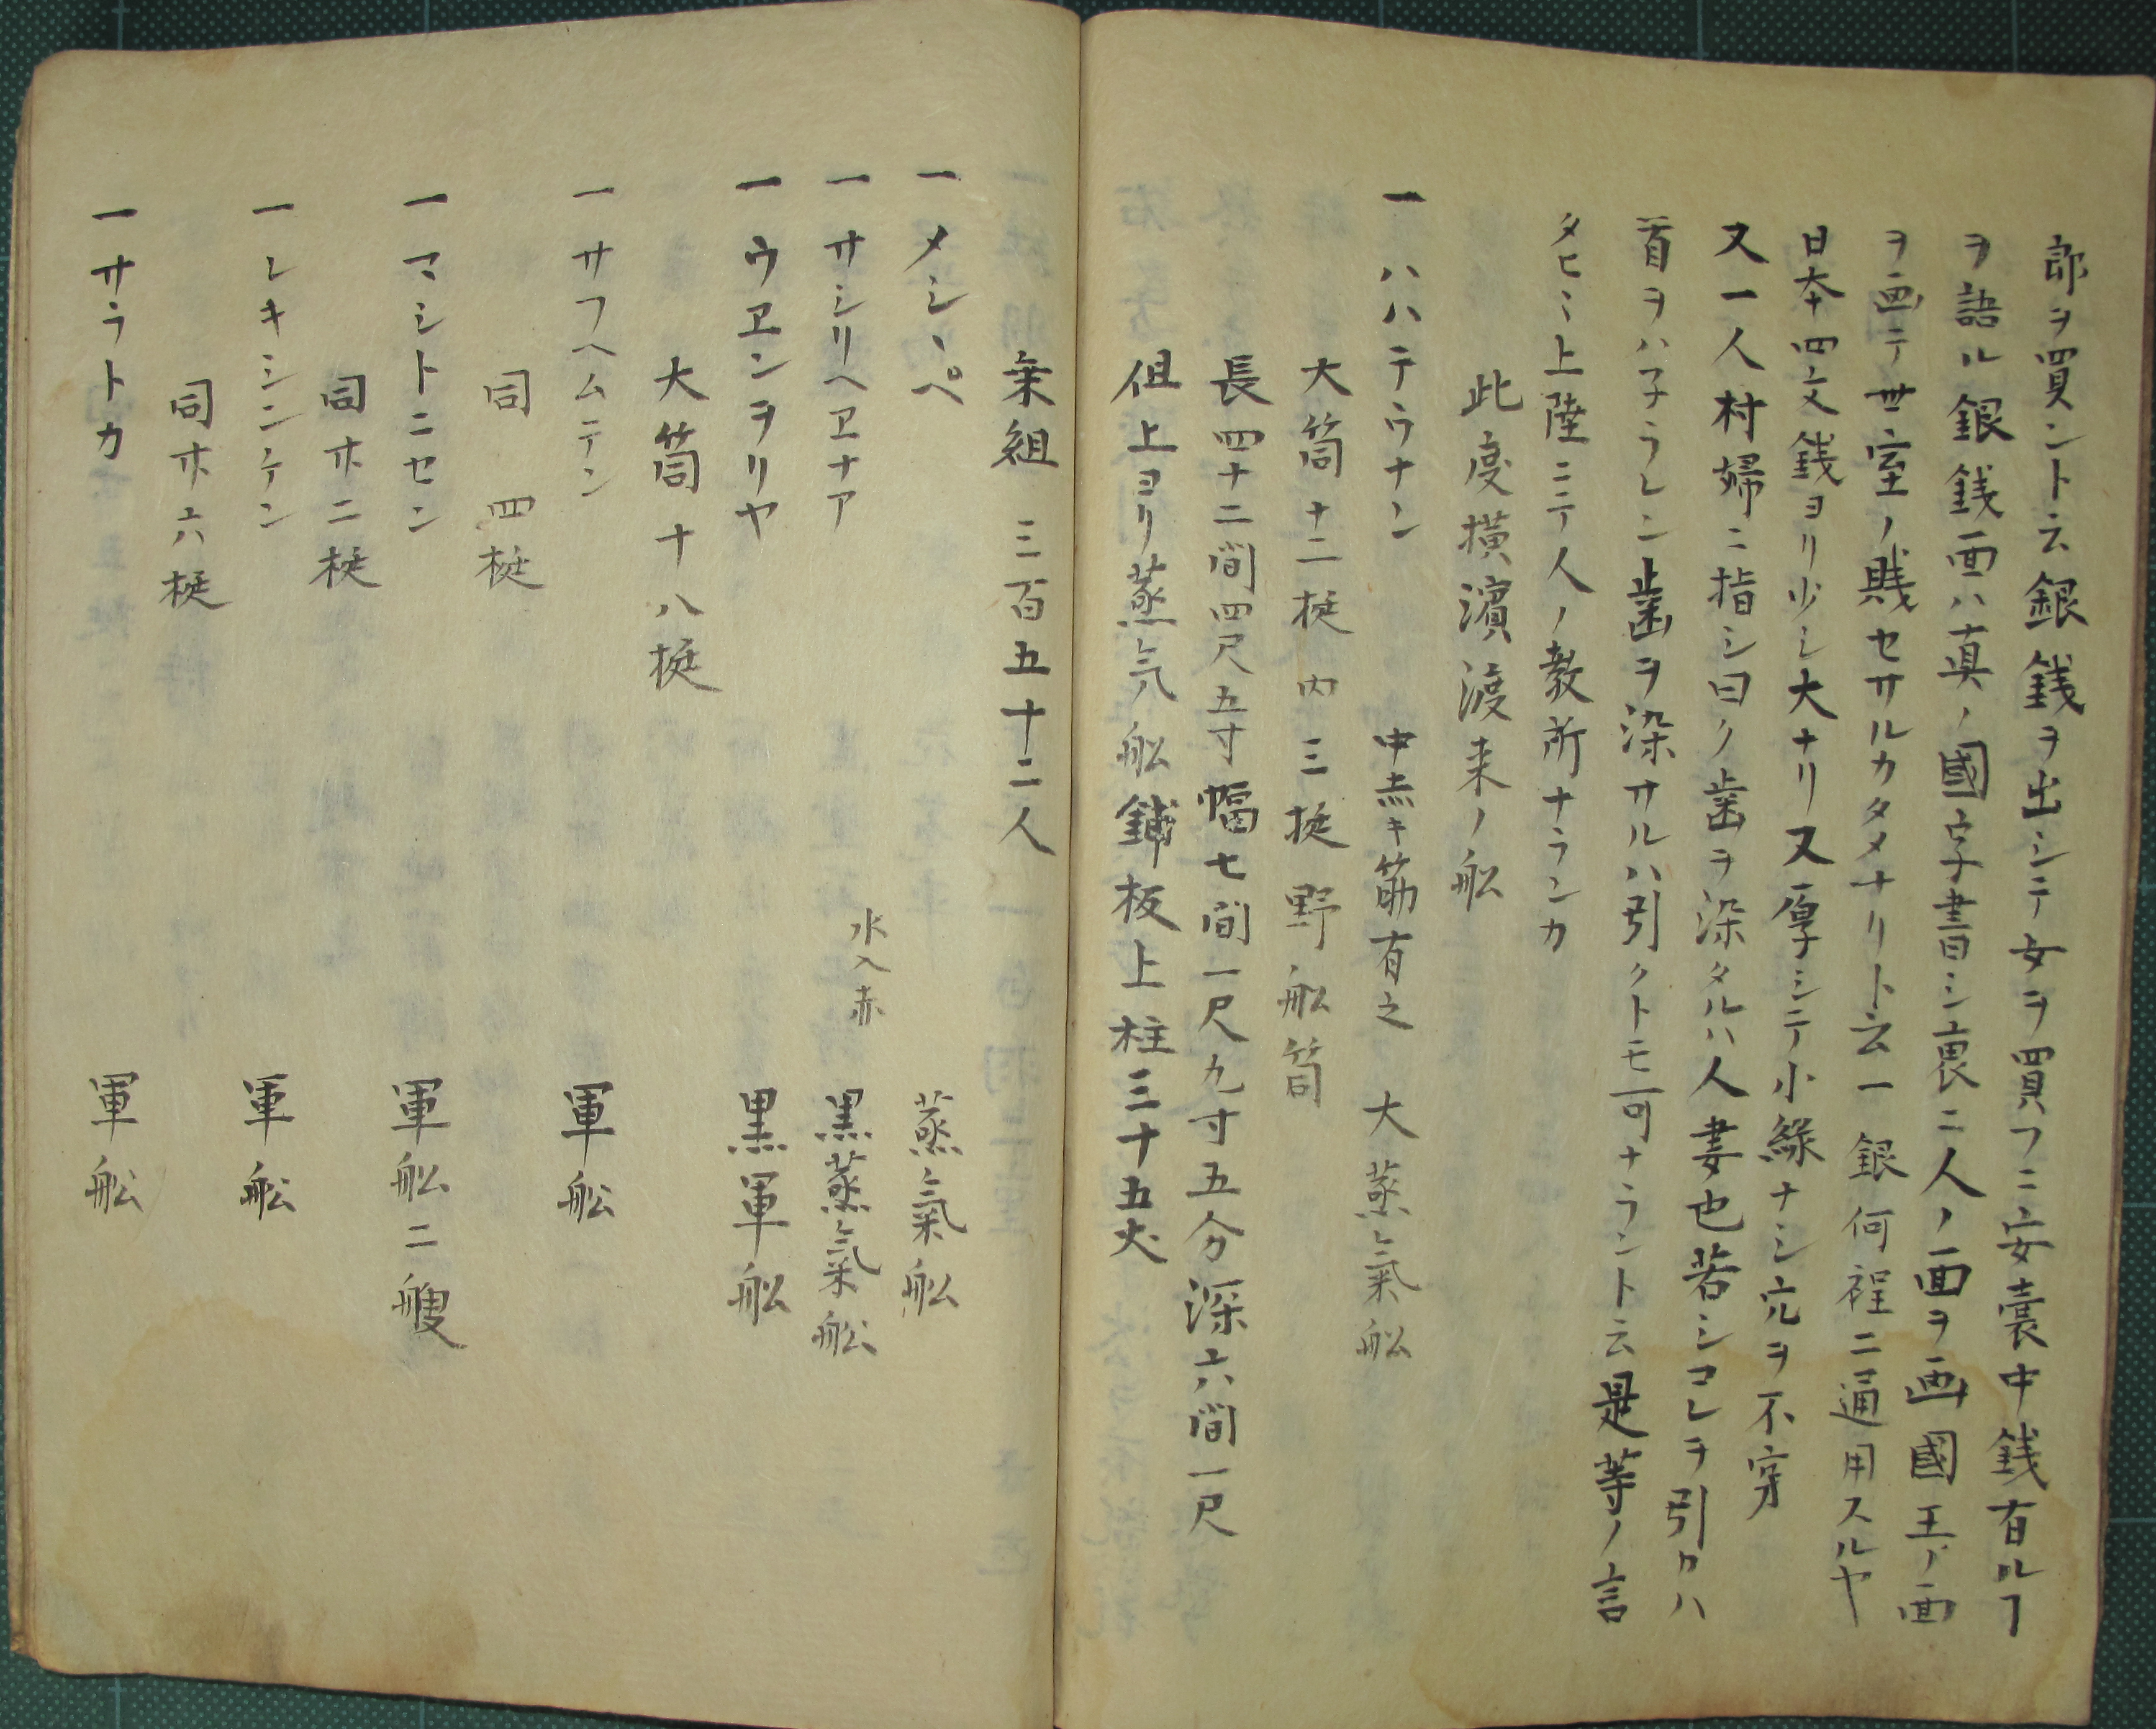 郎ヲ買ント云銀銭ヲ出シテ女ヲ買フニ安囊中銭有ルヿ
ヲ語ル銀銭面ハ真ノ國字書シ裏ニ人ノ面ヲ画國王ノ面
ヲ画テ世室ノ賎セサルカタメナリト云一銀何程ニ通用スルヤ
日本四文銭ヨリ少シ大ナリ又厚シテ小緑ナシ穴ヲ不穿
又一人村婦ニ指シ曰ク歯ヲ染タルハ人妻也若シコレヲ引クハ
首ヲハ子ラレン歯ヲ染サルハ引クトモ可ナラント云是等ノ言
タヒミ上陸ニテ人ノ教所ナランカ
此度横濱渡来ノ舩
一ハハテウナン 中赤キ筋有之 大蒸氣舩
大筒十二挺内三挺野舩筒
長四十二間四尺五寸幅七間一尺九寸五分深六間一尺
但上ヨリ蒸気舩鋪板上柱三十五尺
乗組 三百五十二人
一メシヽペ 蒸氣舩
一サシリヘヱナア 水入赤 黒蒸氣舩
一ウヱンヲリヤ 黒軍舩
大筒十八挺
一サフヘムテン 軍舩
同 四挺
一マシトニセン 軍舩二艘
同廿二挺
一レキシンケン 軍舩
同廿六挺
一サラトカ 軍舩